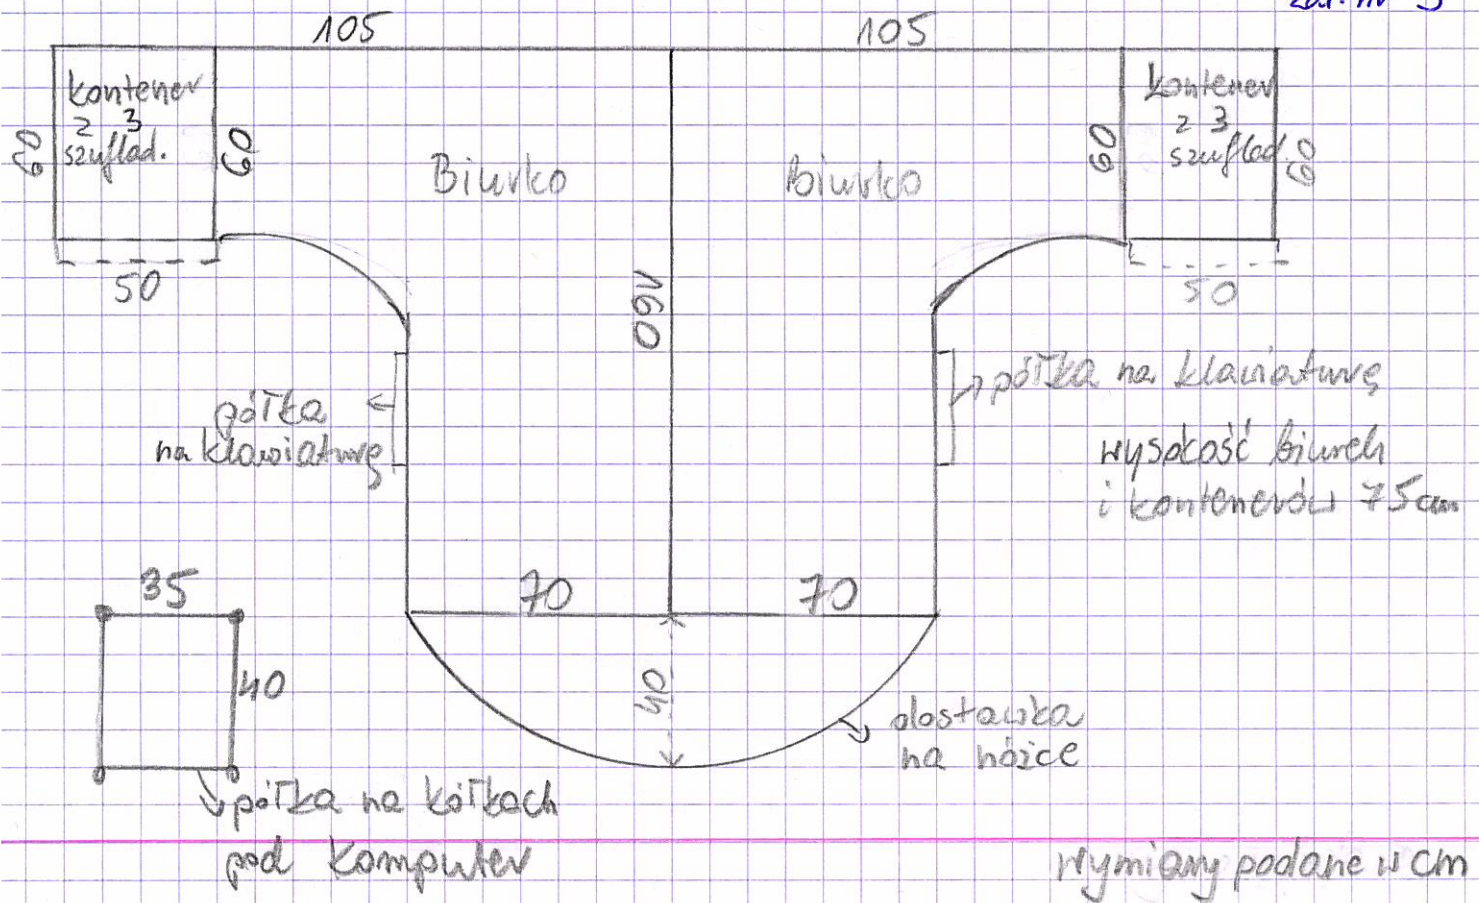 zał. nr 3
105
105
kontener
2 3
szuflad.
60
60
Biurko
Biurko
60
kontener
2 3
szuflad.
60
50
160
50
półka
na klawiaturę
półka na klawiaturę
wysokość biurek
i kontenerów 75cm
35
70
70
40
40
dostawka
na nóżce
półka na kółkach
pod komputer
wymiary podane w cm